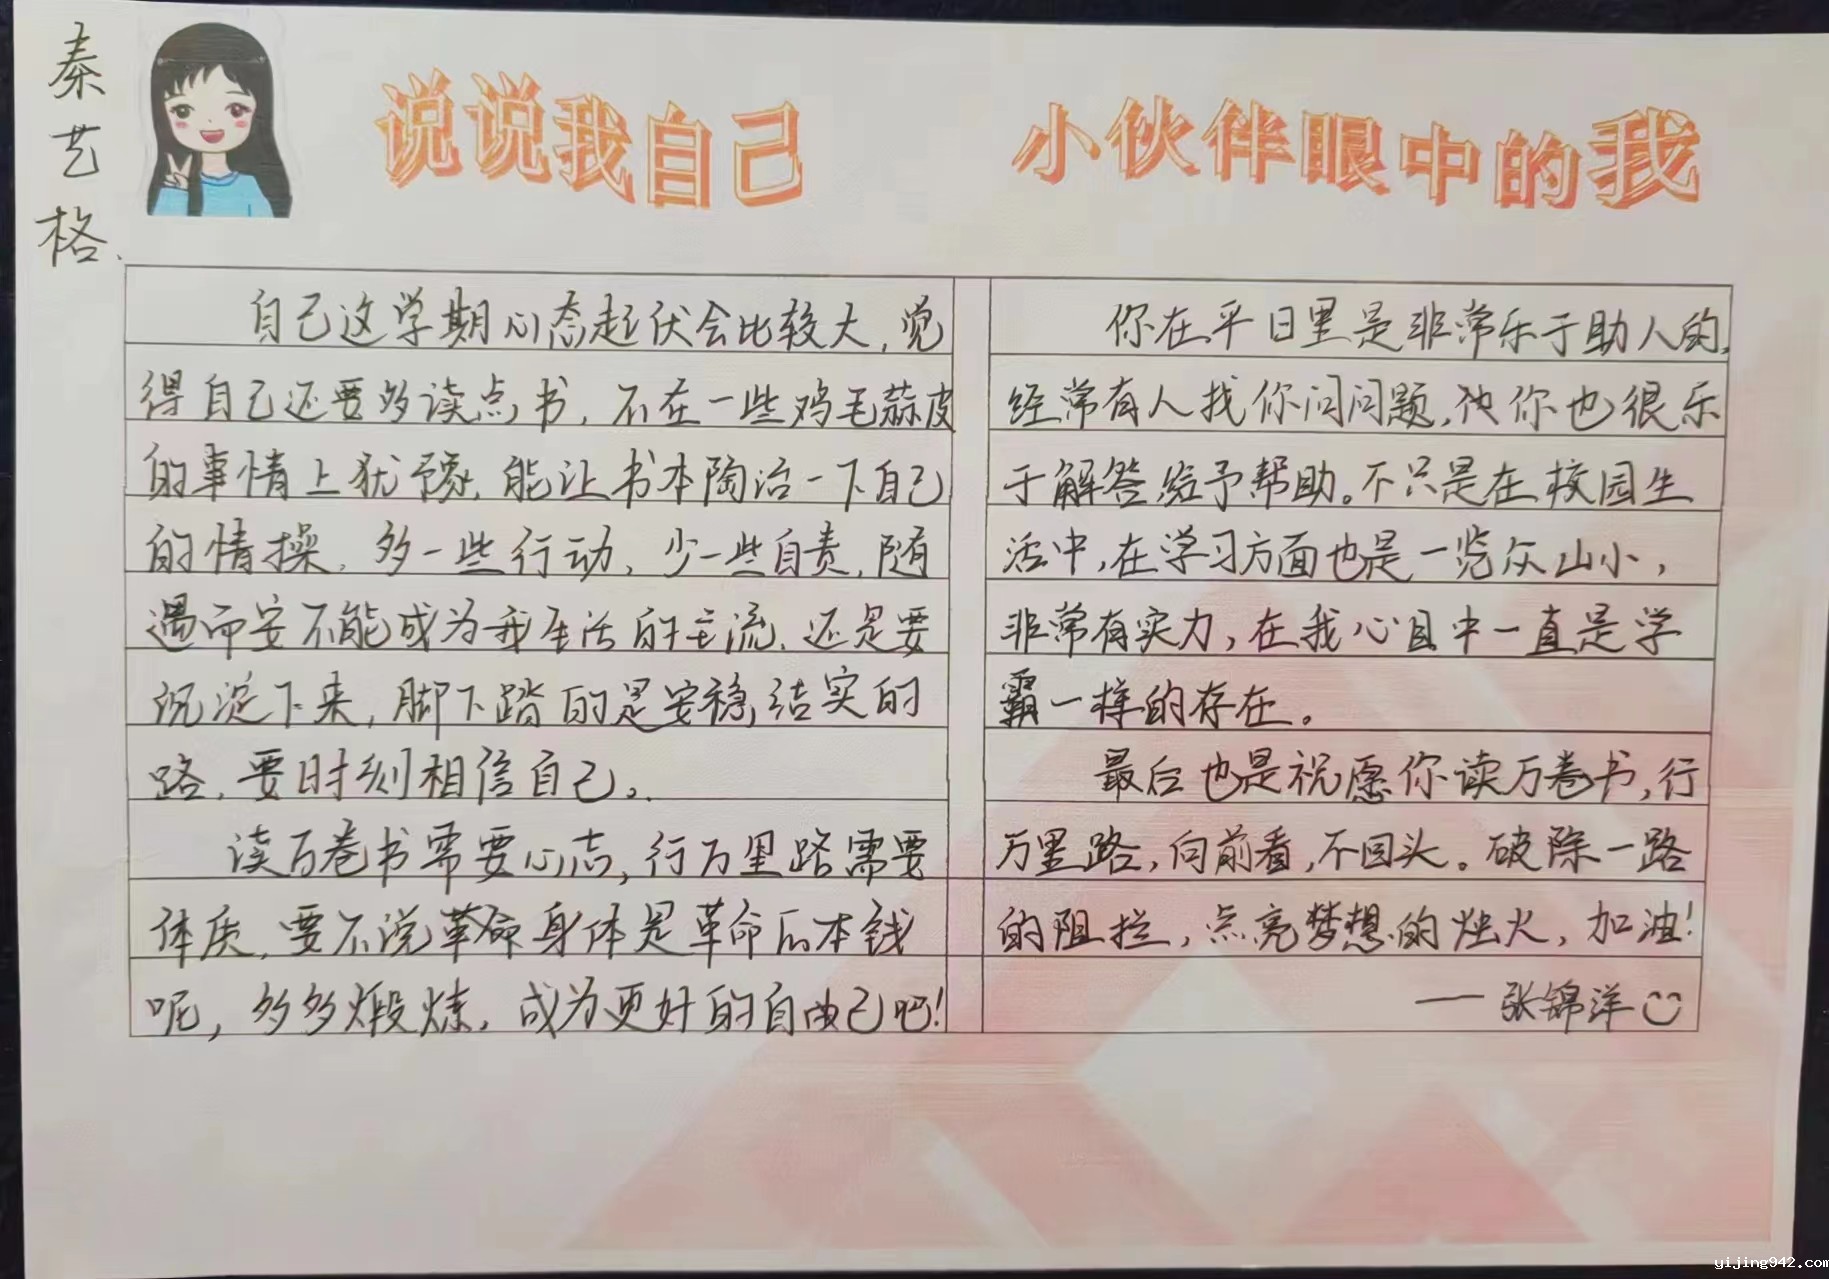 秦艺格
说说我自己
自己这学期心态起伏会比较大，觉
得自己还要多读点书，不在一些鸡毛蒜皮
的事情上犹豫，能让书本陶冶一下自己
的情操，多一些行动，少一些自责，随
遇而安不能成为我生活的主流，还是要
沉淀下来，脚下踏的是安稳，结实的
路，要时刻相信自己。
读万卷书需要心志，行万里路需要
体质，要不说革命身体是革命的本钱
呢，多多煅炼，成为更好的自由己吧！
小伙伴眼中的我
你在平日里是非常乐于助人的，
经常有人找你问问题，但你也很乐
于解答给予帮助。不只是在校园生
活中，在学习方面也是一览众山小，
非常有实力，在我心目中一直是学
霸一样的存在。
最后也是祝愿你读万卷书，行
万里路，向前看，不回头。破除一路
的阻拦，点亮梦想的烛火，加油！
——张锦洋
yijing942.com